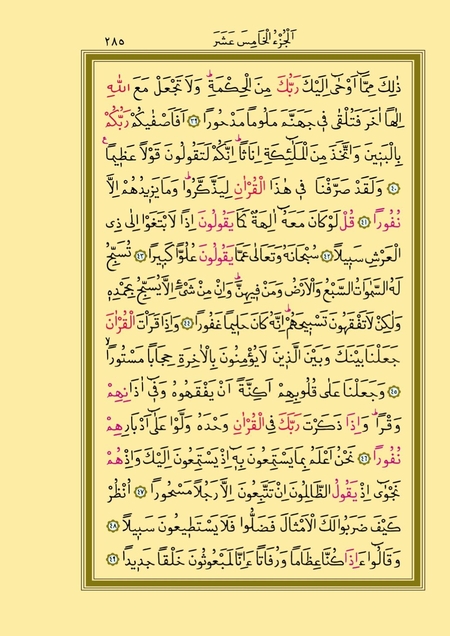 اَلْجُزْءُ الْخَامِسَ عَشَرَ ٢٨٥
ذٰلِكَ مِمَّٓا اَوْحٰٓى اِلَيْكَ رَبُّكَ مِنَ الْحِكْمَةِۜ وَلَا تَجْعَلْ مَعَ اللّٰهِ
اِلٰهًا اٰخَرَ فَتُلْقٰى فٖي جَهَنَّمَ مَلُومًا مَدْحُورًا ﴿٣٩﴾ اَفَاَصْفٰيكُمْ رَبُّكُمْ
بِالْبَنٖينَ وَاتَّخَذَ مِنَ الْمَلٰٓئِكَةِ اِنَاثًاۜ اِنَّكُمْ لَتَقُولُونَ قَوْلًا عَظٖيمًاࣖ
﴿٤٠﴾ وَلَقَدْ صَرَّفْنَا فٖي هٰذَا الْقُرْاٰنِ لِيَذَّكَّرُواۜ وَمَا يَزٖيدُهُمْ اِلَّا
نُفُورًا ﴿٤١﴾ قُلْ لَوْ كَانَ مَعَهُٓ اٰلِهَةٌ كَمَا يَقُولُونَ اِذًا لَابْتَغَوْا اِلٰى ذِي
الْعَرْشِ سَبٖيلًا ﴿٤٢﴾ سُبْحَانَهُ وَتَعَالٰى عَمَّا يَقُولُونَ عُلُوًّا كَبٖيرًا ﴿٤٣﴾ تُسَبِّحُ
لَهُ السَّمٰوَاتُ السَّبْعُ وَالْاَرْضُ وَمَنْ فٖيهِنَّۜ وَاِنْ مِنْ شَيْءٍ اِلَّا يُسَبِّحُ بِحَمْدِهٖ
وَلٰكِنْ لَا تَفْقَهُونَ تَسْبٖيحَهُمْۜ اِنَّهُ كَانَ حَلٖيمًا غَفُورًا ﴿٤٤﴾ وَاِذَا قَرَأْتَ الْقُرْاٰنَ
جَعَلْنَا بَيْنَكَ وَبَيْنَ الَّذٖينَ لَا يُؤْمِنُونَ بِالْاٰخِرَةِ حِجَابًا مَسْتُورًاۙ
﴿٤٥﴾ وَجَعَلْنَا عَلٰى قُلُوبِهِمْ اَكِنَّةً اَنْ يَفْقَهُوهُ وَفٖٓي اٰذَانِهِمْ
وَقْرًاۜ وَاِذَا ذَكَرْتَ رَبَّكَ فِي الْقُرْاٰنِ وَحْدَهُ وَلَّوْا عَلٰٓى اَدْبَارِهِمْ
نُفُورًا ﴿٤٦﴾ نَحْنُ اَعْلَمُ بِمَا يَسْتَمِعُونَ بِهٖٓ اِذْ يَسْتَمِعُونَ اِلَيْكَ وَاِذْ هُمْ
نَجْوٰٓى اِذْ يَقُولُ الظَّالِمُونَ اِنْ تَتَّبِعُونَ اِلَّا رَجُلًا مَسْحُورًا ﴿٤٧﴾ اُنْظُرْ
كَيْفَ ضَرَبُوا لَكَ الْاَمْثَالَ فَضَلُّوا فَلَا يَسْتَطٖيعُونَ سَبٖيلًا ﴿٤٨﴾
وَقَالُٓوا ءَاِذَا كُنَّا عِظَامًا وَرُفَاتًا ءَاِنَّا لَمَبْعُوثُونَ خَلْقًا جَدٖيدًا ﴿٤٩﴾